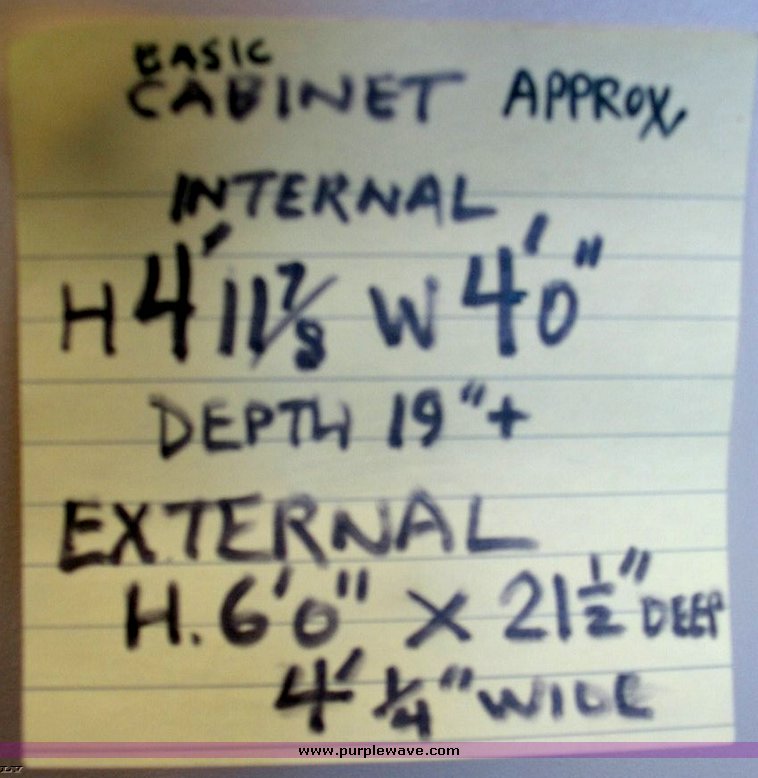 BASIC
CABINET APPROX.
INTERNAL
H 4' 11 7/8 W 4' 0"
DEPTH 19"+
EXTERNAL
H. 6' 0" X 21 1/2" DEEP
4' 1/4" WIDE
www.purplewave.com